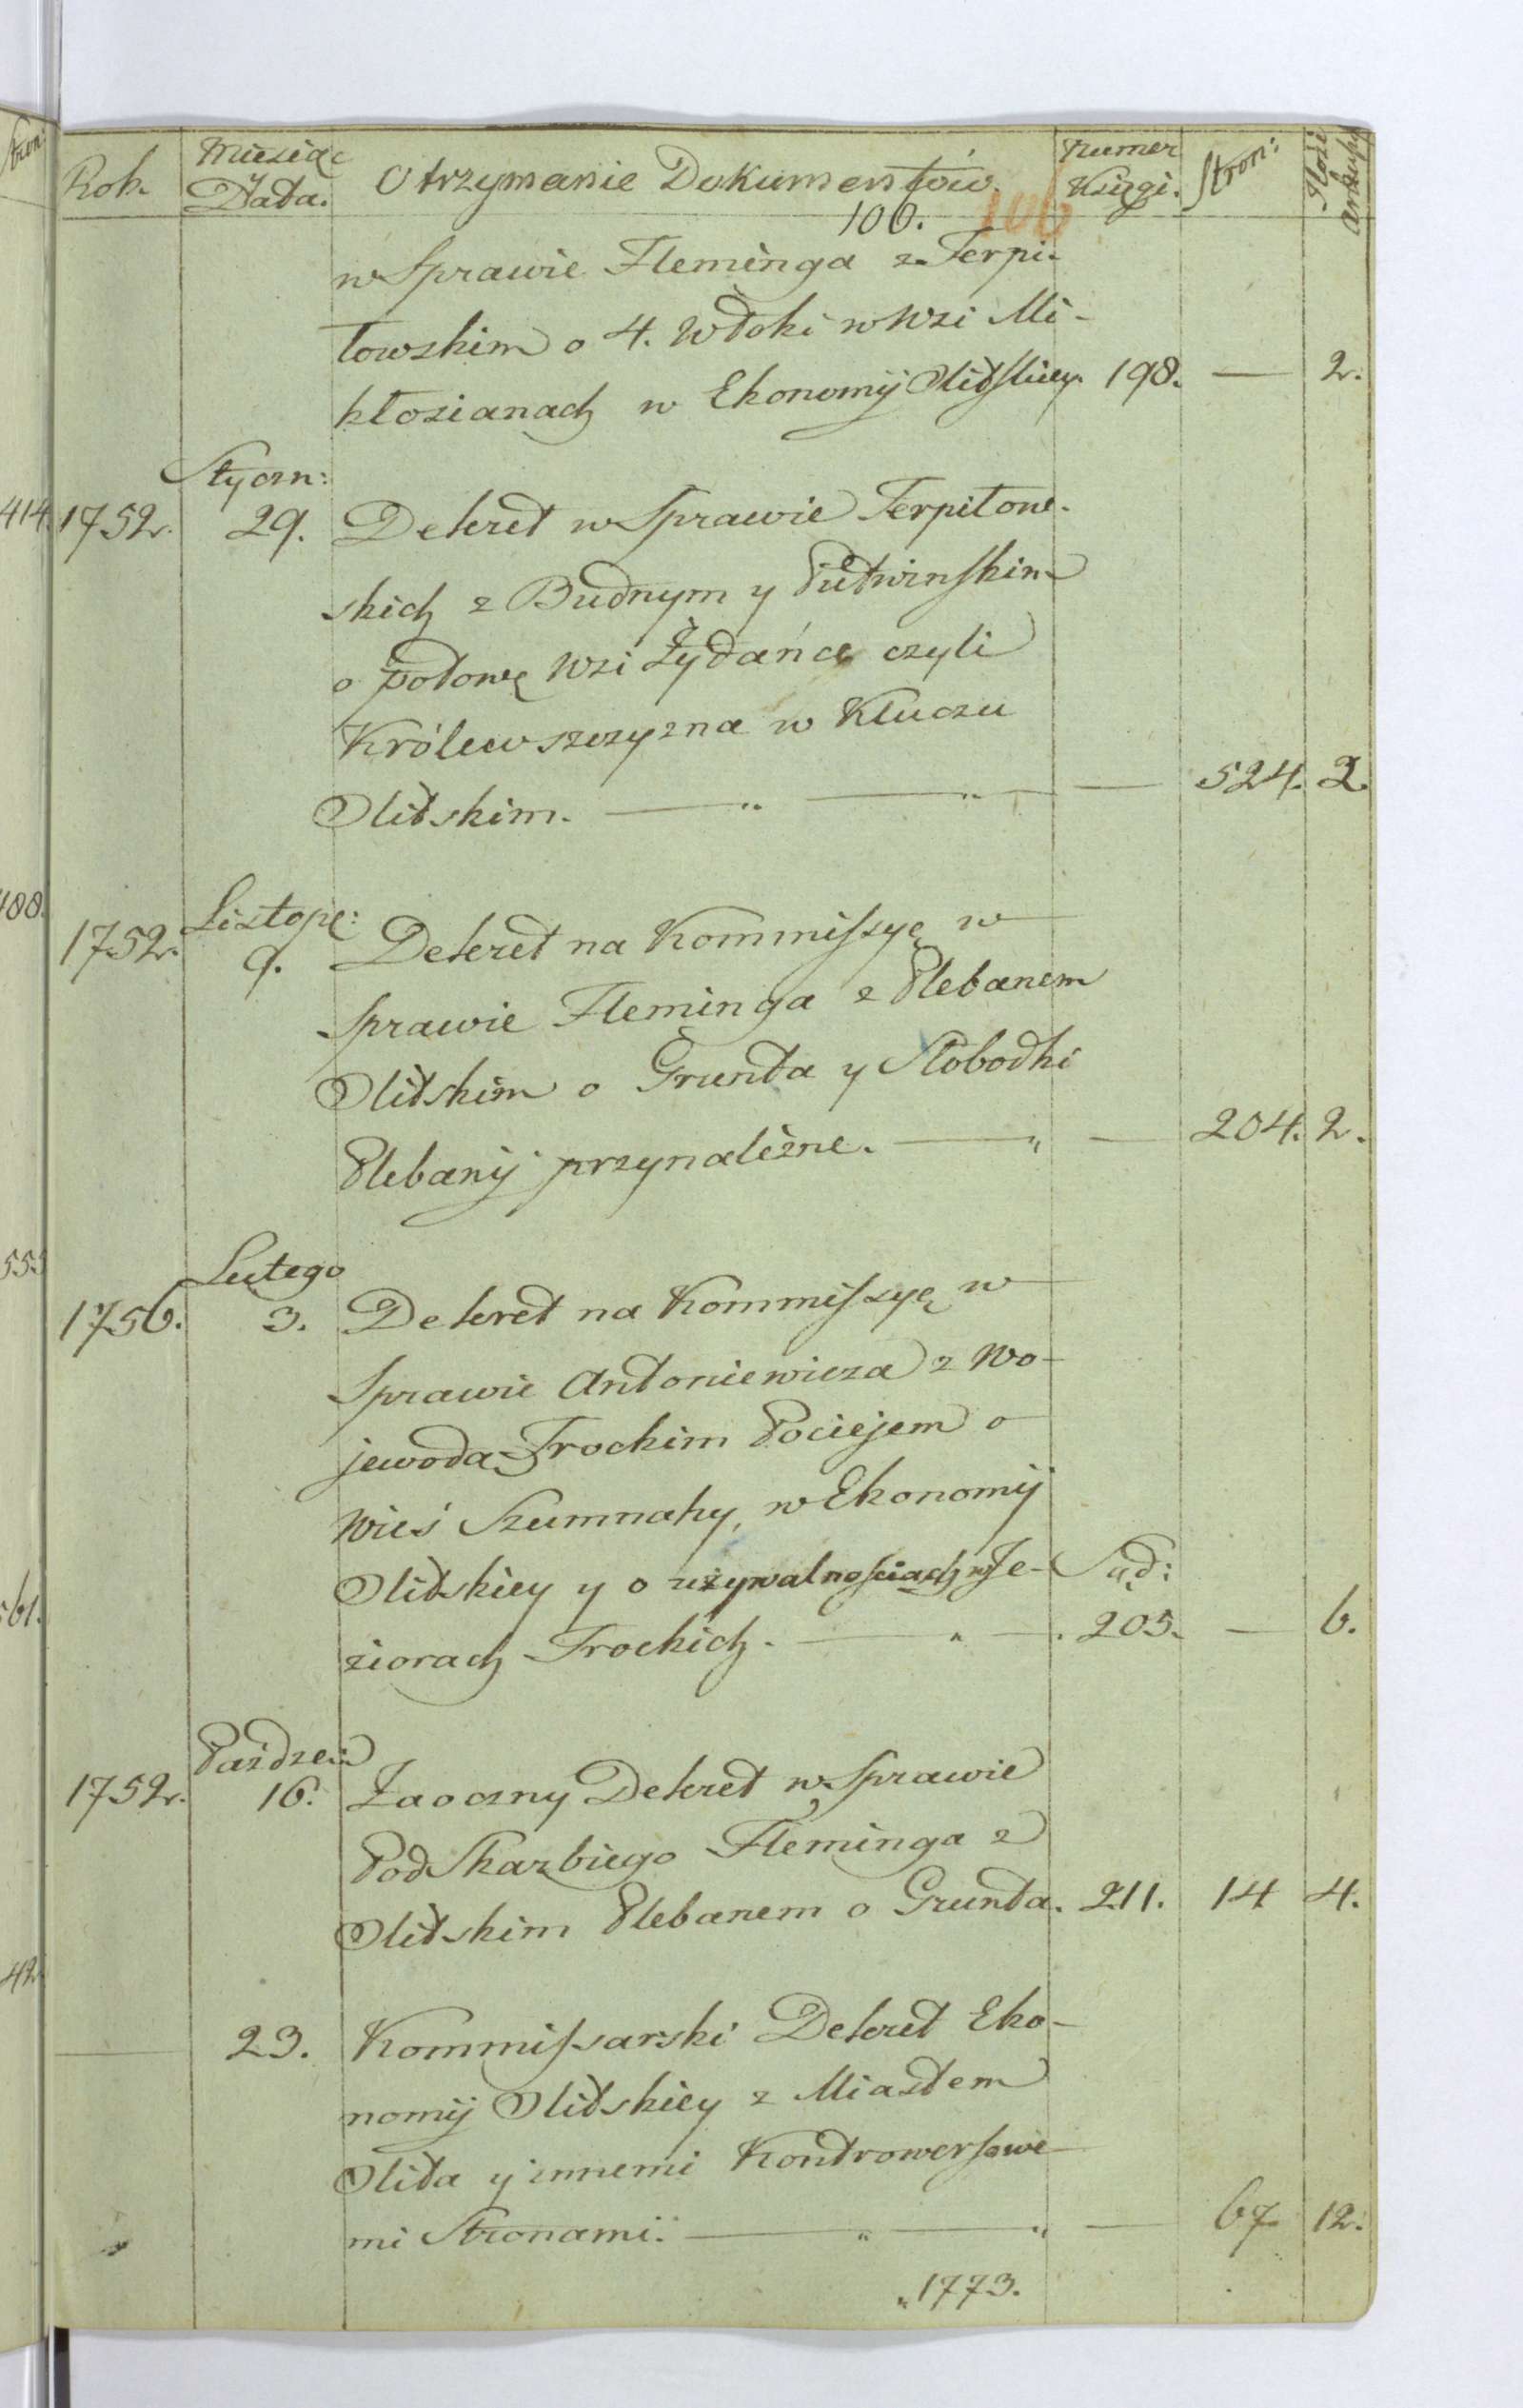 Rok. Miesiąc y Data. Otrzymanie Dokumentów. Numer Księgi. Stron: Ilość arkuszy
100. 106
w Sprawie Fleminga z Terpi-
łowskim o 4. Włoki w Wsi Mi-
kłosianach w Ekonomij Olitskiey. 198. — 2.
Styczn:
1752. 29. Dekret w Sprawie Terpiłow-
skich z Budnym y Putwinskim
o połowę Wsi Żydańce czyli
Królewszczyzna w Kluczu
Olitskim. — " — " — — 524. 2.
Listop:
1752. 9. Dekret na Kommissyę w
Sprawie Fleminga z Plebanem
Olitskim o Grunta y Słobodki
Plebanij przynależne. — " — 204. 2.
Lutego
1756. 3. Dekret na Kommissyę w
Sprawie Antoniewicza z Wo-
jewodą Trockim Pociejem o
Wieś Szumnahy, w Ekonomij
Olitskiey y o używalnościach w Je- Sąd:
ziorach Trockich. — " — . 205. — 6.
Paździer:
1752. 16. Zaoczny Dekret w Sprawie
Podskarbiego Fleminga z
Olitskim Plebanem o Grunta. 211. 14 4.
— 23. Kommissarski Dekret Eko-
nomij Olitskiey z Miastem
Olita y innemi Kontrowersowe-
mi Stronami. — " — " — 67 12.
" 1773.
414.
488.
555
561.
42
Stron: